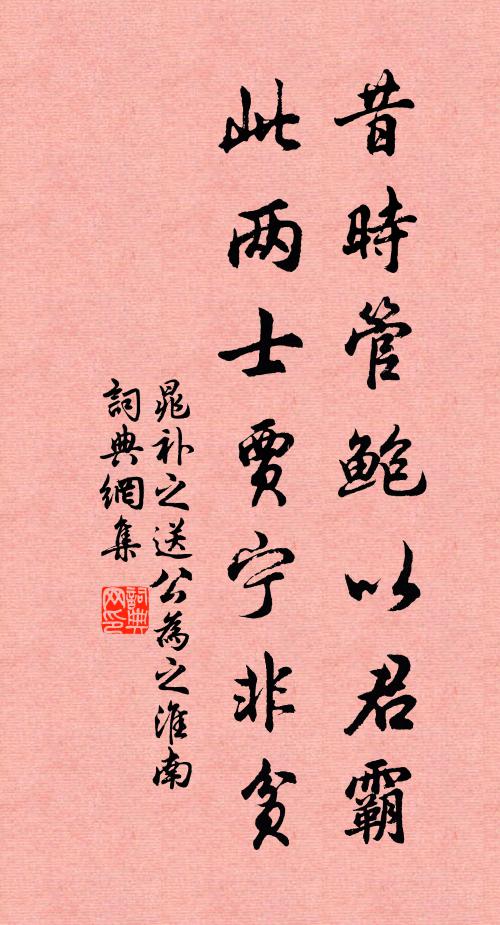 昔時管鮑以君霸
此两士賈宁非貧
晁补之送公為之淮南
詞典網集
詞典
网印